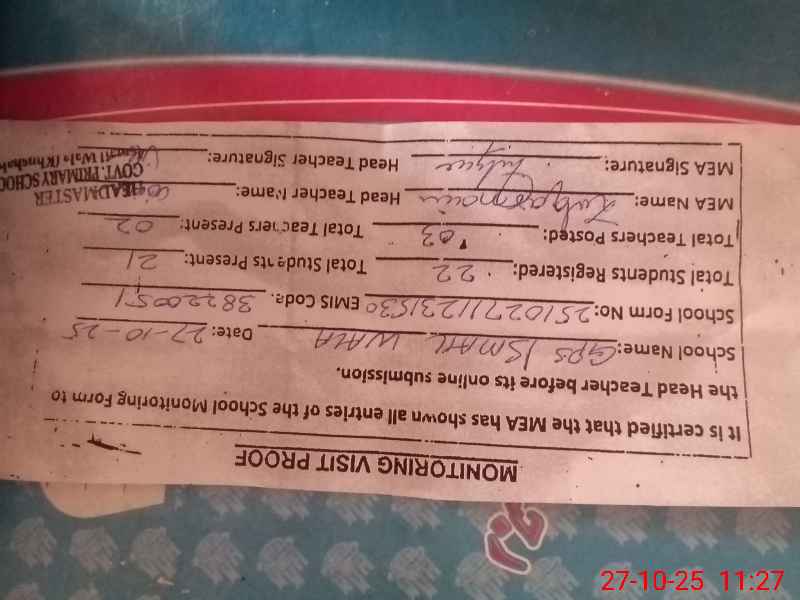 MONITORING VISIT PROOF
It is certified that the MEA has shown all entries of the School Monitoring Form to
the Head Teacher before its online submission.
School Name: GPS ISMAIL WALA Date: 27-10-25
School Form No: 251027111231530 EMIS Code: 38220051
Total Students Registered: 22 Total Students Present: 21
Total Teachers Posted: 03 Total Teachers Present: 02
MEA Name: Head Teacher Name:
MEA Signature: Head Teacher Signature:
HEADMASTER
GOVT. PRIMARY SCHOO
27-10-25 11:27